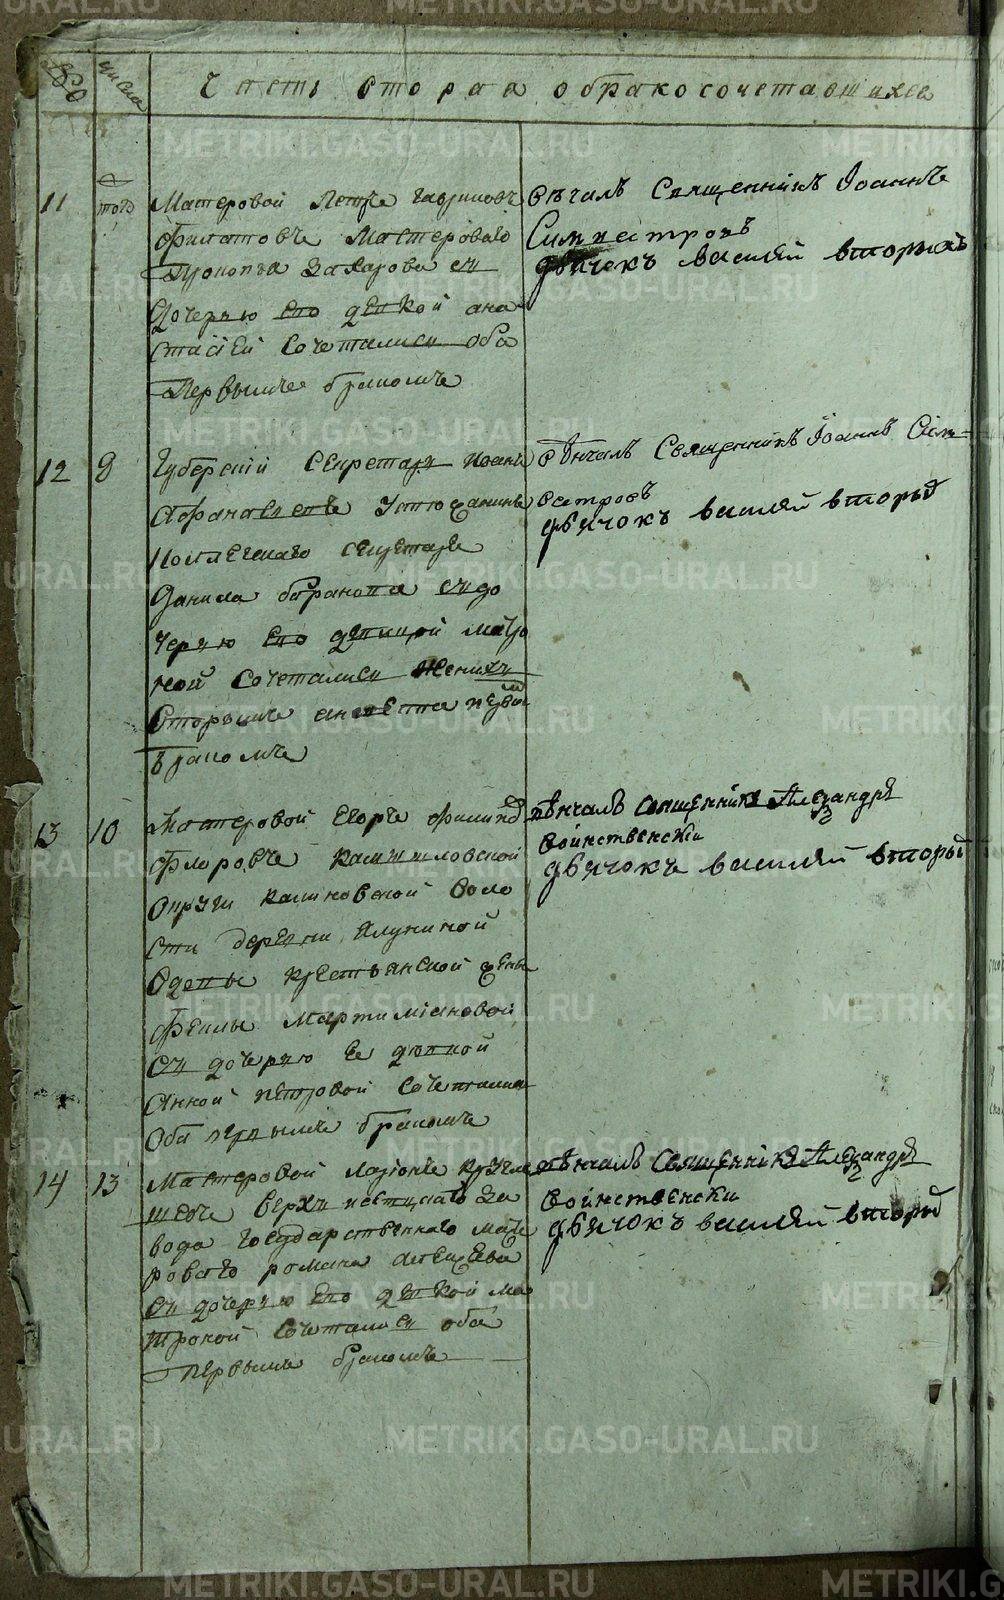 №
числа
Часть вторая о бракосочетавшихся
11
того
Мастеровой Петръ Гавриловъ
Филатовъ Мастероваго
Прокопья Захарова съ
дочерью его девкой Ана
стасией сочетались оба
Первымъ бракомъ
Венчалъ Священникъ Iоаннъ
Силвестровъ
дьячокъ Василей вторый
12
8
Губернский Секретарь Иоаннъ
Афанасьевъ Устюжанинъ
секретаря
Данила Баранова съ до
черью его девицей Матро
ной сочетались Жених
вторымъ а невеста первым
бракомъ
Вѣнчалъ Священникъ Iоаннъ Сил-
вестровъ
дьячокъ Василей вторый
13
10
Мастеровой Егоръ
Флоровъ Камышловской
Округи Калиновской воло
сти деревни
вдовы крестьянской жены
Феклы Мартимiановой
съ дочерью ее девкой
Анной Петровой сочетались
Оба первымъ бракомъ
вѣнчалъ священникъ Александръ
Воинственски
дьячокъ Василей вторый
14
13
Мастеровой Ларiонъ
Верхъ исетскаго за
вода Государственнаго масте
роваго Романа
съ дочерью его девкой Ма
троной сочетались оба
первымъ бракомъ
вѣнчалъ Священникъ Александръ
Воинственски
дьячокъ Василей вторый
METRIKI.GASO-URAL.RU